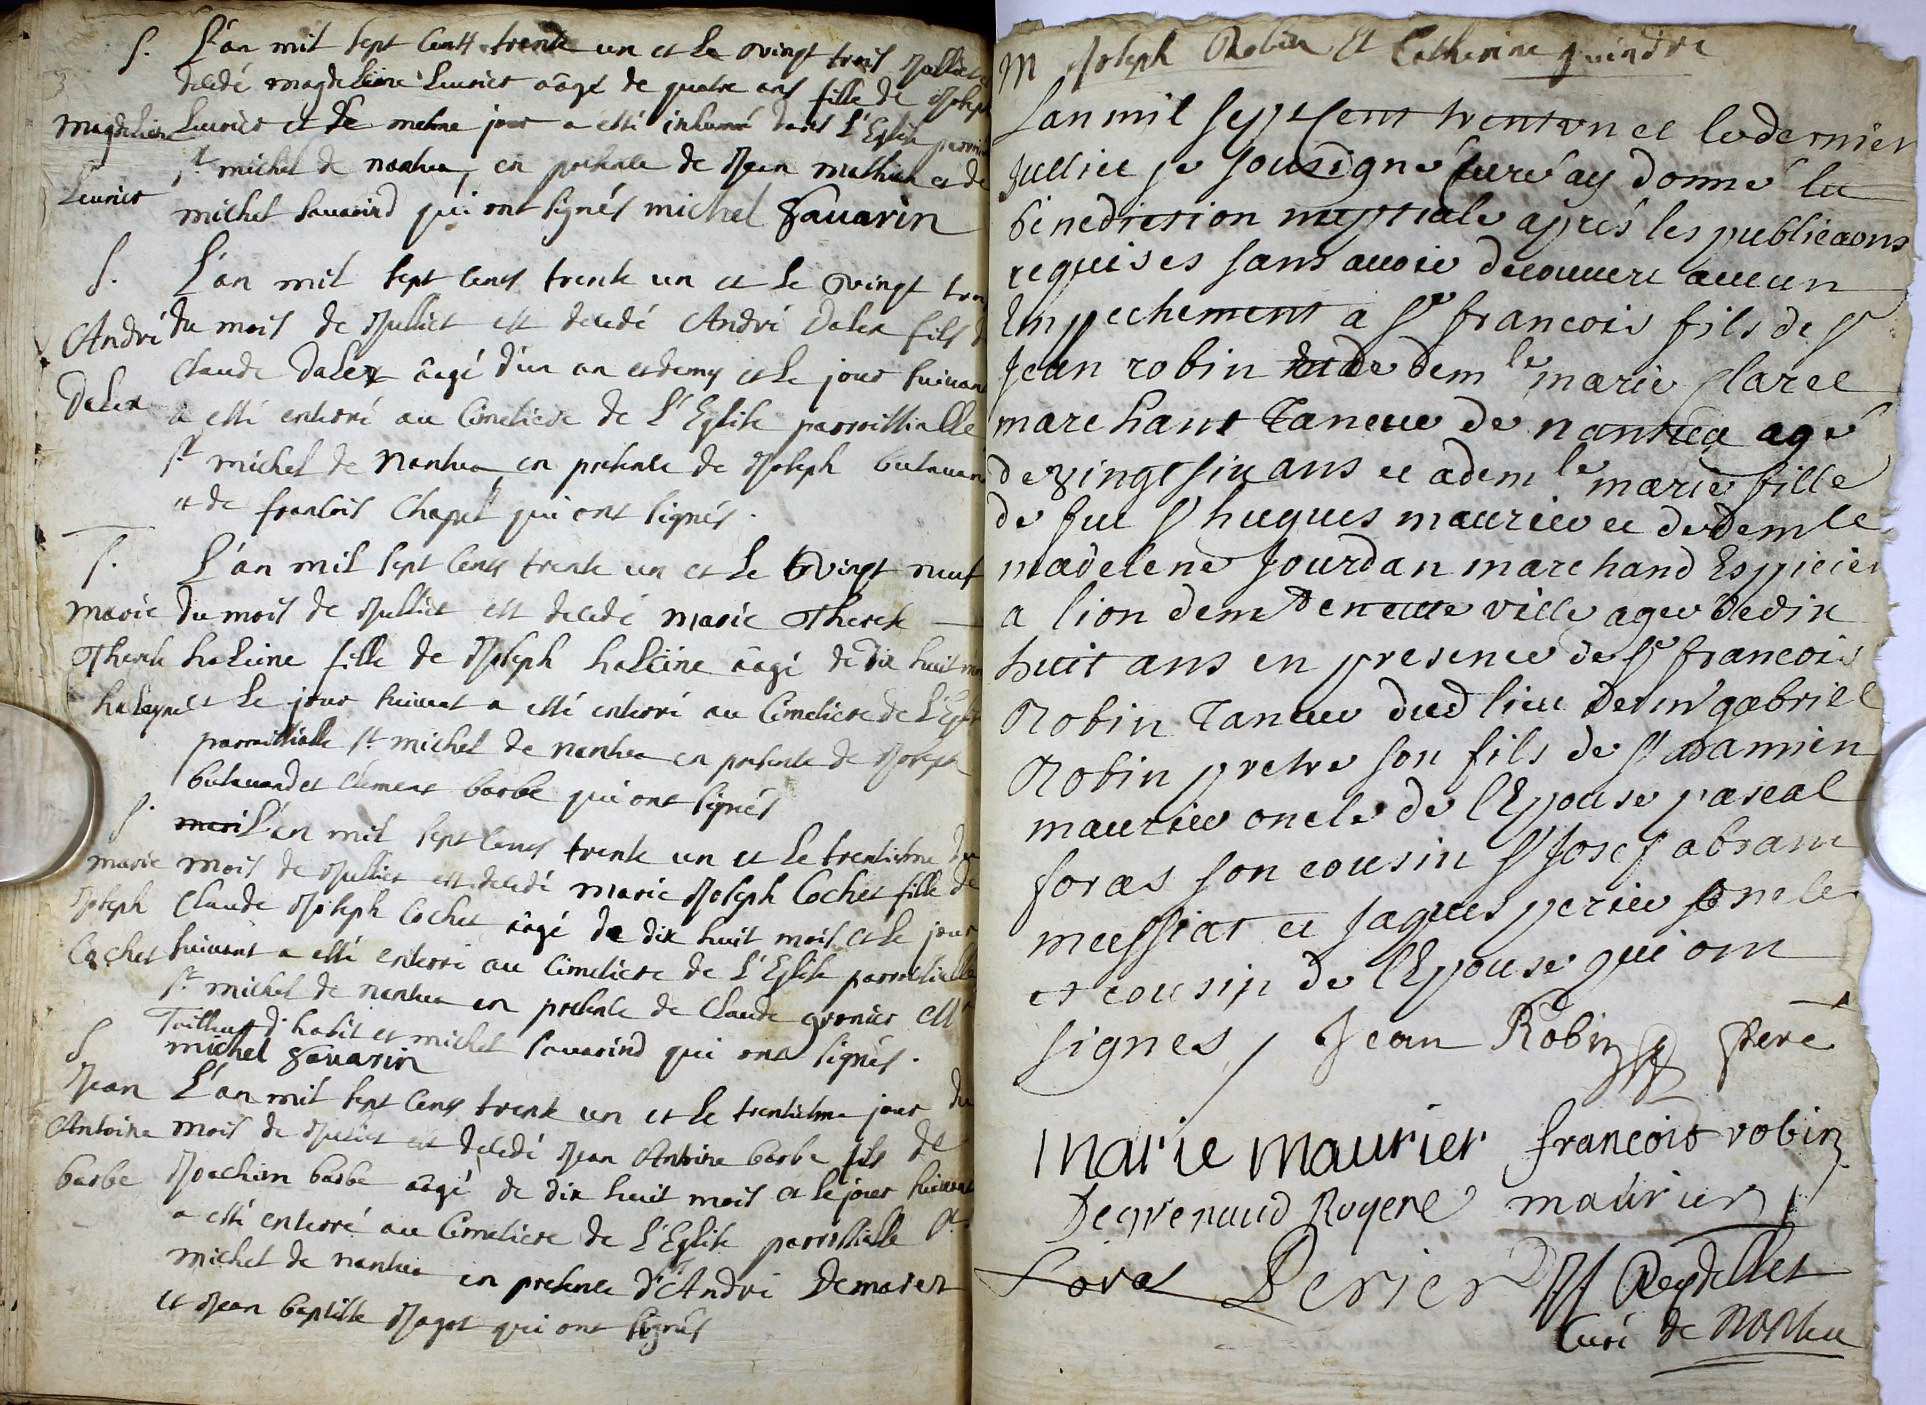 S. L'an mil sept cents trente un et le vingt trois Julliet
decedé magdeleine Leurier aâgé de quatre ans fille de Joseph
magdeleine Leurier et le mesme jour a esté inhumé dans L'Eglise
Leurier st michel de nantua, en presence de Jean mathieu et de
michel sauarind qui ont signés michel sauarin
S. L'an mil sept cents trente un et le vingt trois
André du mois de Julliet est decedé André Dalex fils de
Dalex Claude Dalex aâgé d'un an et demy et le jour suiuant
a esté enterré au Cimetiere de L'Eglise parroissialle
st michel de nantua en presence de Joseph
et de francois Chapel qui ont signés.
S. L'an mil sept cents trente un et le vingt neuf
marie du mois de Julliet est decedé marie Therese
Therese fille de Joseph aâgé de dix huit mois
et le jour suiuant a esté enterré au Cimetiere de L'Eglise
parroissialle st michel de nantua en presence de Joseph
et Clement barbe qui ont signés
S. L'an mil sept cents trente un et le trentiesme du
marie mois de Julliet est decedé marie Joseph Cochet fille de
Joseph Claude Joseph Cochet aâgé de dix huit mois et le jour
Cochet suiuant a esté enterré au Cimetiere de L'Eglise parroissialle
st michel de nantua en presence de Claude gronier
Tailleur d'habit et michel sauarind qui ont signés.
S. michel sauarin
Jean L'an mil sept cents trente un et le trentiesme jour du
Antoine mois de Julliet est decedé Jean Antoine barbe fils de
barbe Joachim barbe aâgé de dix huit mois et le jour suiuant
a esté enterré au Cimetiere de L'Eglise parroissialle st
michel de nantua en presence d'André
et Jean baptiste Jagot qui ont signés
M Joseph Robin Et Catherine
Lan mil sept cent trentun et le dernier
Julliet je sousigné curé ay donné la
benediction nuptiale aprés les publicaons
requises sans auoir decouuert aucun
Enpechement a sr francois fils de sr
Jean robin et de demle marie claret
marchant Taneur de nantua agé
de vingt six ans et a demle marie fille
de fut sr hugues maurier et de demle
madelene Jourdan marchand Espicier
a lion demte en cette ville agee de dix
huit ans en presence de sr francois
Robin Taneur dud lieu de mr gabriel
Robin pretre son fils de sr damien
maurier oncle de lEpouse pascal
foras son cousin sr Josep abram
messiat et Jaques perier oncle
et cousin de lEpouse qui ont
signes / Jean Robin pere
marie maurier francois robin
Rogere maurier
foras Perier Reydellet
Curé de Nantua